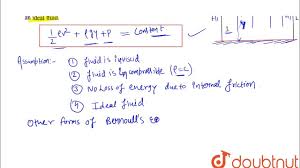 Ideal fluid.
½ρv² + ρgy + P = Constant
H1
Assumption:-
① fluid is inviscid
② fluid is Incompressible (ρ=C)
③ No Loss of energy due to Internal friction
④ Ideal fluid
Other forms of Bernoulli's
doubtnut